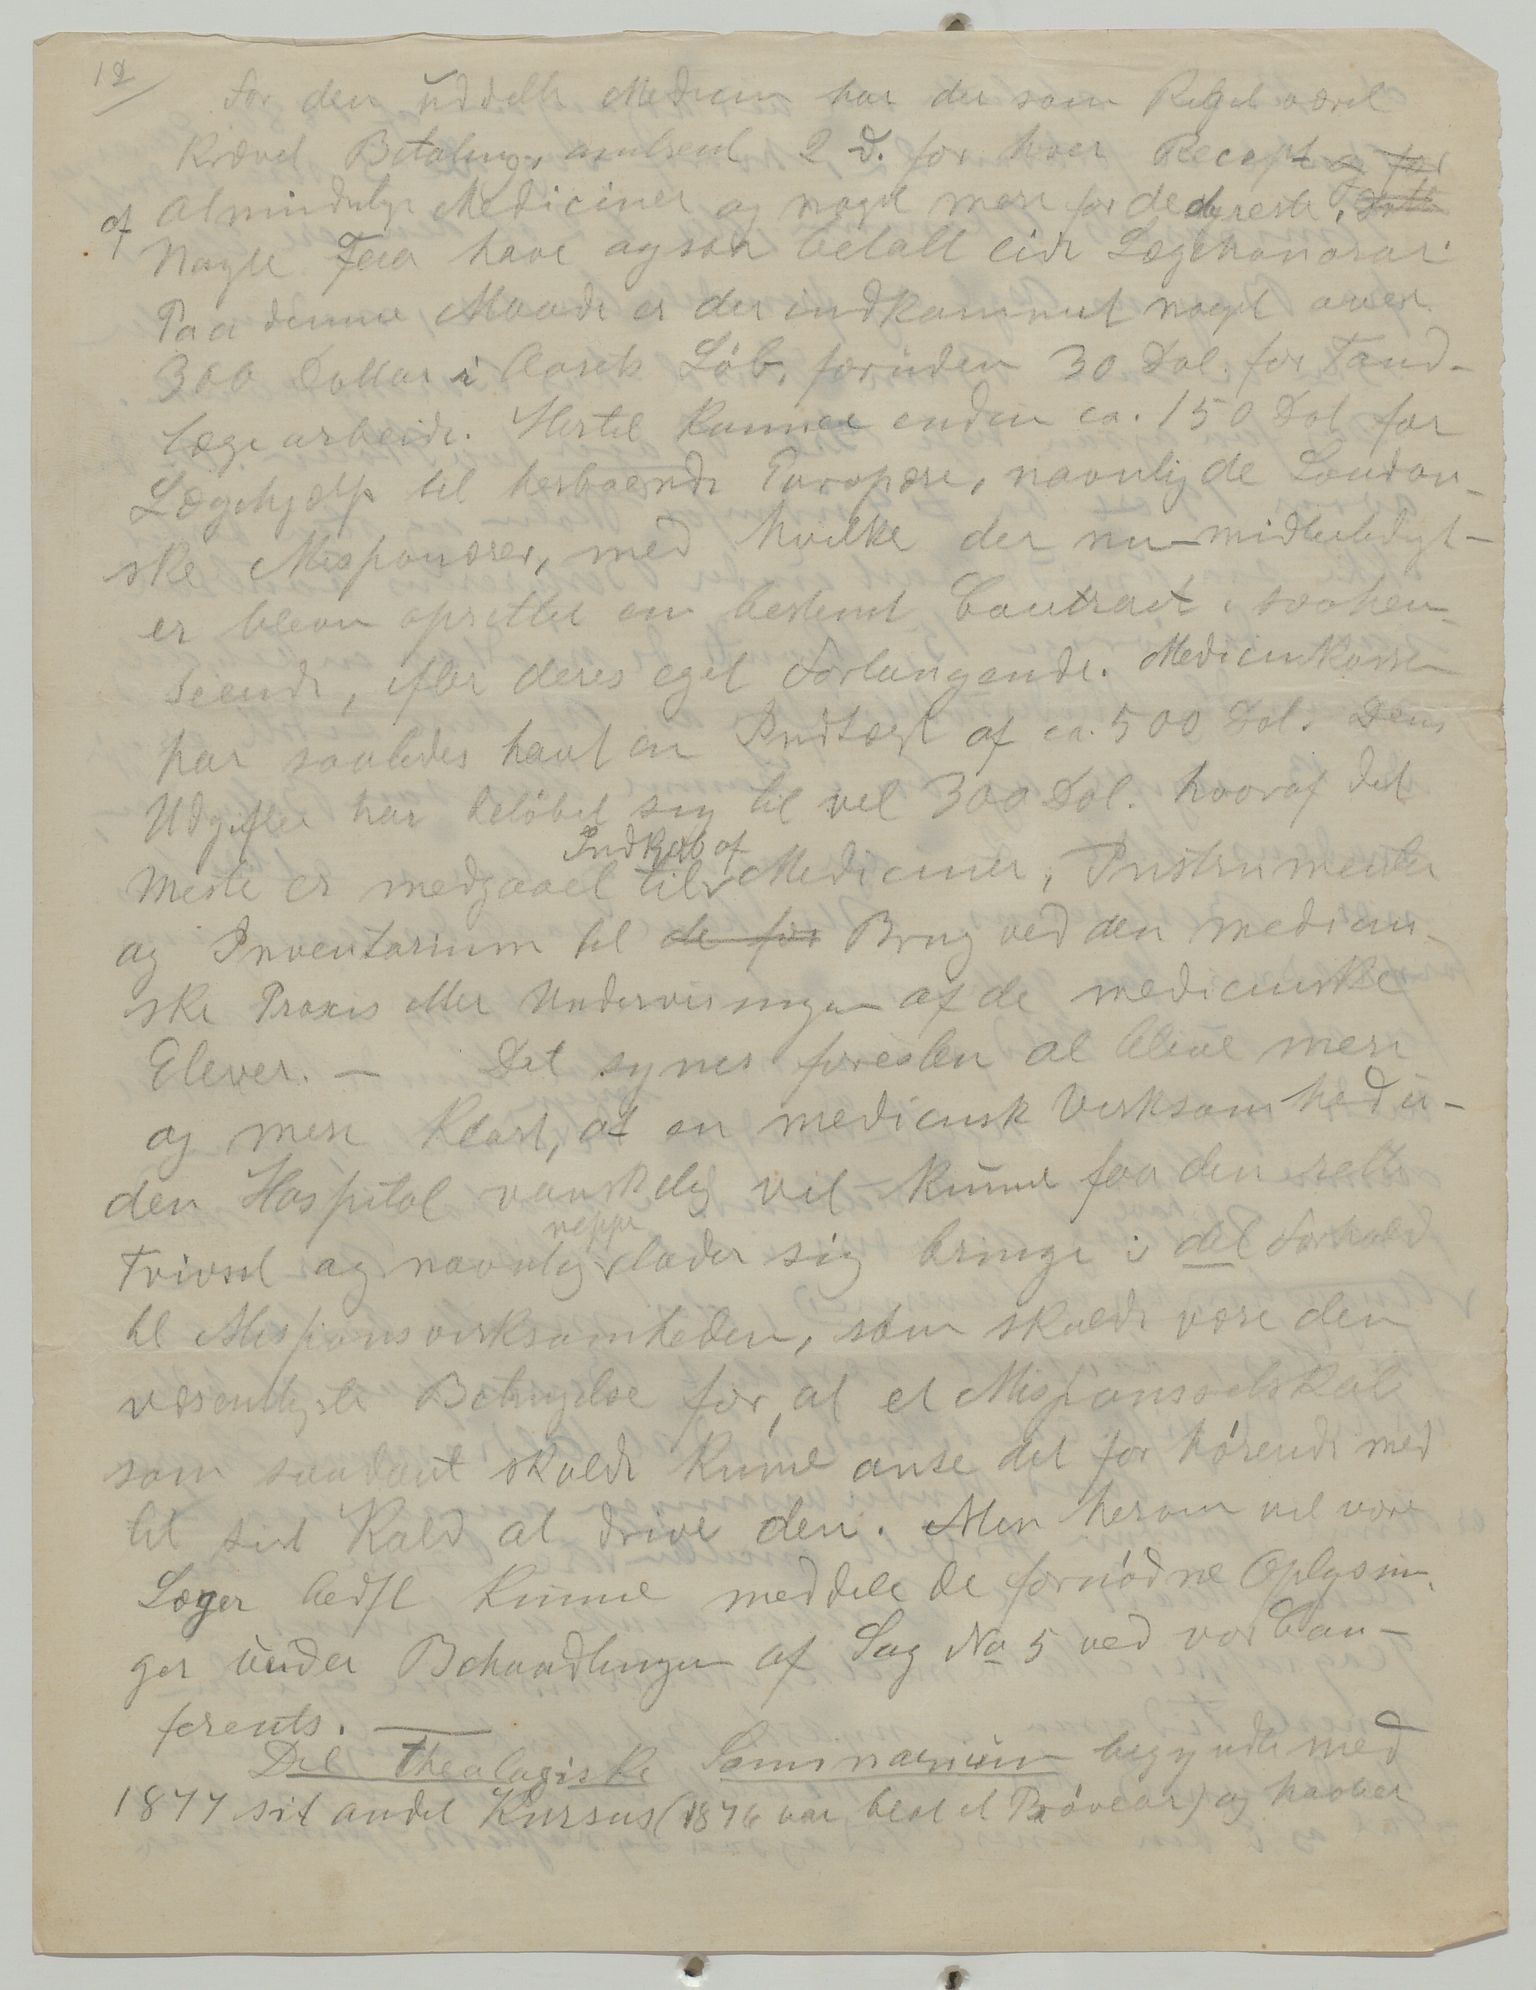 12/
For den uddelte Medicin har der som Regel været
krævet Betaling, omtrent 2 d. for hver Recept og for
af almindelige Mediciner og noget mere for de dyreste.
Nogle Faa have ogsaa betalt eide Lægehonorar.
Paa denne Maade er der indkommet noget over
300 Dollar i Aarets Løb, foruden 30 Dol. for Tand-
lægearbeide. Hertil kommer endnu ca. 150 Dol for
Lægehjælp til herboende Europære, navnlig de London-
ske Missionærer, med hvilke der nu midlertidigt
er bleven oprettet en bestemt Contract i saahen-
seende, efter deres eget Forlangende. Medicinkassen
har saaledes havt en Indtægt af ca. 500 Dol. Dens
Udgifter har beløbet sig til vel 300 Dol. hvoraf det
meste er medgaaet til Indkjøb af Mediciner, Instrumenter
og Inventarium til de for Brug ved den medicin-
ske Praxis eller Undervisningen af de medicinske
Elever. — Det synes forresten at blive mere
og mere klart, at en medicinsk Virksomhed u-
den Hospital vanskelig vil kunne faa den rette
Trivsel og navnlig neppe lader sig bringe i det Forhold
til Missionsvirksomheden, som skulde være den
væsentligste Betingelse for, at et Missionsselskab
som saadant skulde kunne anse det for hørende med
til sit Kald at drive den. Men herom vil vore
Læger bedst kunne meddele de fornødne Oplysnin-
ger under Behandlingen af Sag No 5 ved vor Con-
ferents. —
Det theologiske Seminarium begyndte med
1877 sit andet Kursus (1876 var blot et Prøveaar) og haaber